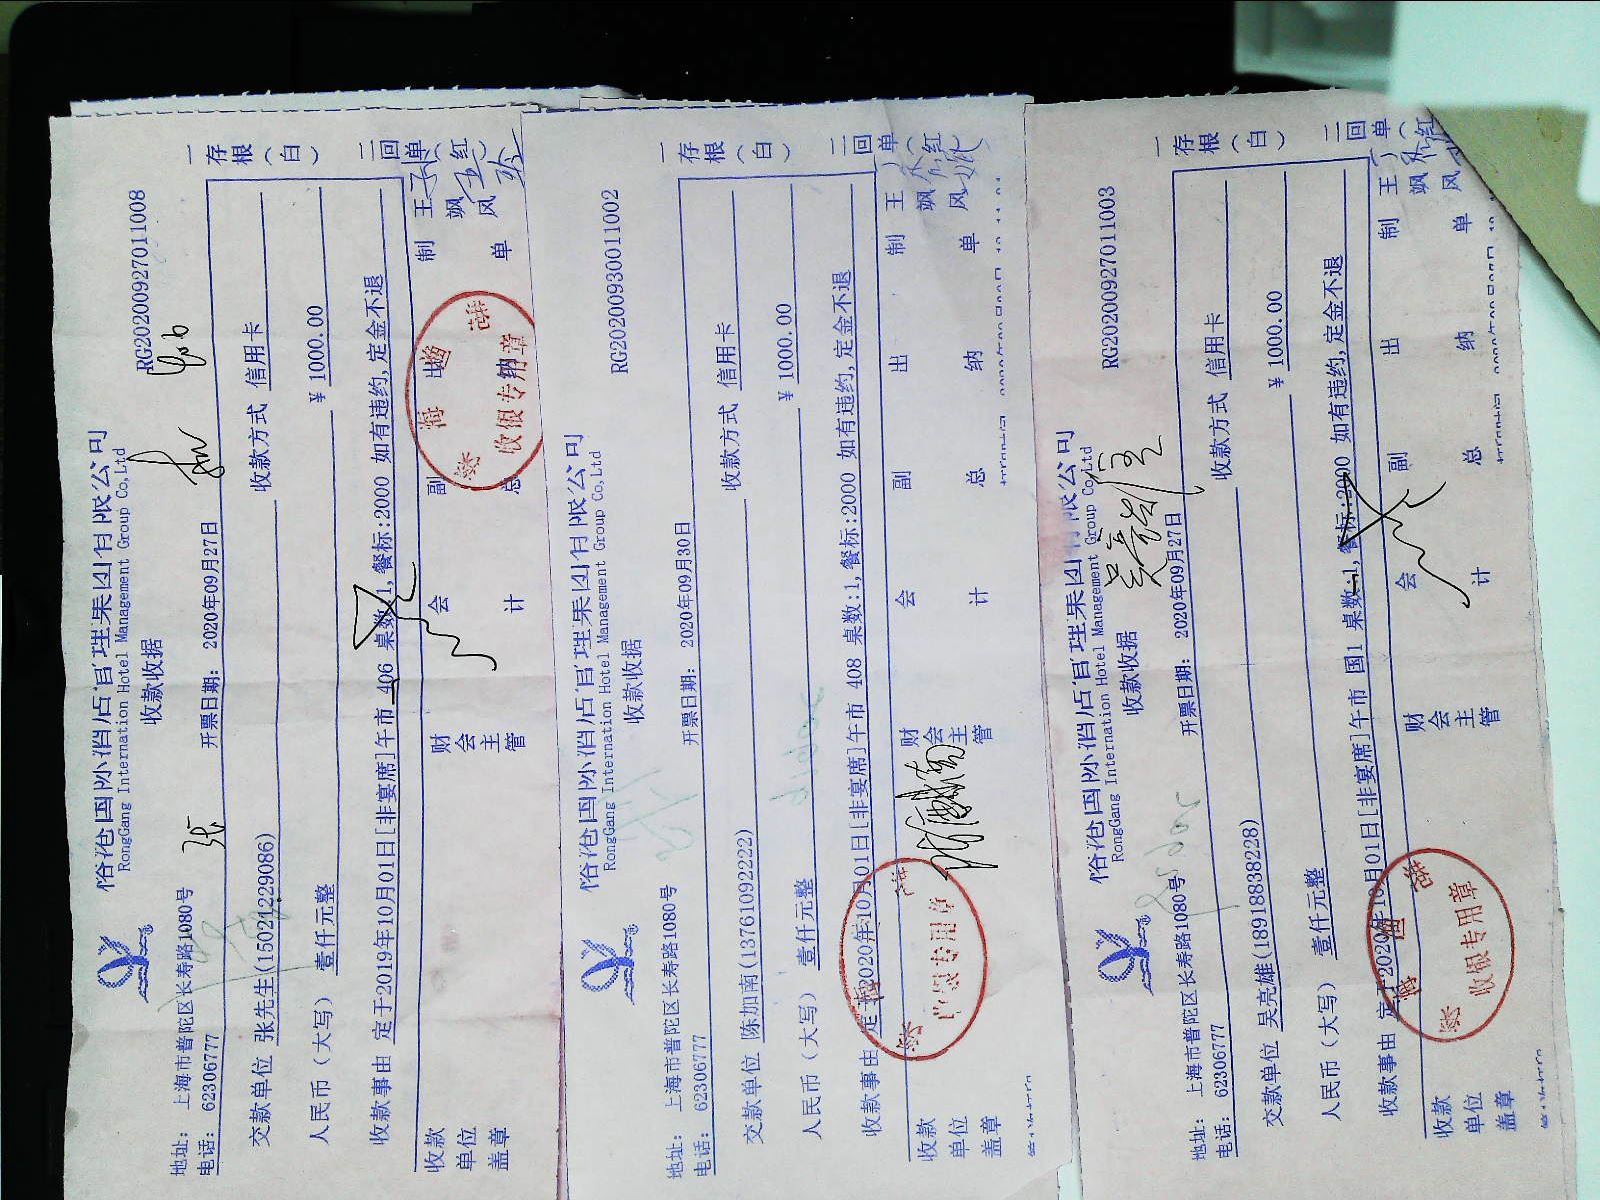 RongGang Internation Hotel Management Group Co,Ltd
RG2020092701​1008
收款收据
地址： 上海市普陀区长寿路1080号
电话： 62306777
开票日期： 2020年09月27日
交款单位 张先生(15021229086) 收款方式 信用卡
人民币（大写） 壹仟元整 ¥ 1000.00
收款事由 定于2019年10月01日[非宴席]午市 406 桌数:1,餐标:2000 如有违约,定金不退
收款单位盖章 财会主管 副总会计 出纳 制单 王飒风
收银专用章
一存根（白） 二回单（红）
RongGang Internation Hotel Management Group Co,Ltd
RG20200930011002
收款收据
地址： 上海市普陀区长寿路1080号
电话： 62306777
开票日期： 2020年09月30日
交款单位 陈加南(13761092222) 收款方式 信用卡
人民币（大写） 壹仟元整 ¥ 1000.00
收款事由 定于2020年10月01日[非宴席]午市 408 桌数:1,餐标:2000 如有违约,定金不退
收款单位盖章 财会主管 副总会计 出纳 制单 王飒风
专用章
一存根（白） 二回单（红）
RongGang Internation Hotel Management Group Co,Ltd
RG20200927011003
收款收据
地址： 上海市普陀区长寿路1080号
电话： 62306777
开票日期： 2020年09月27日
交款单位 吴亮雄(18918838228) 收款方式 信用卡
人民币（大写） 壹仟元整 ¥ 1000.00
收款事由 定于2020年10月01日[非宴席]午市 国1 桌数:1,餐标:2000 如有违约,定金不退
收款单位盖章 财会主管 副总会计 出纳 制单 王飒风
收银专用章
一存根（白） 二回单（红）